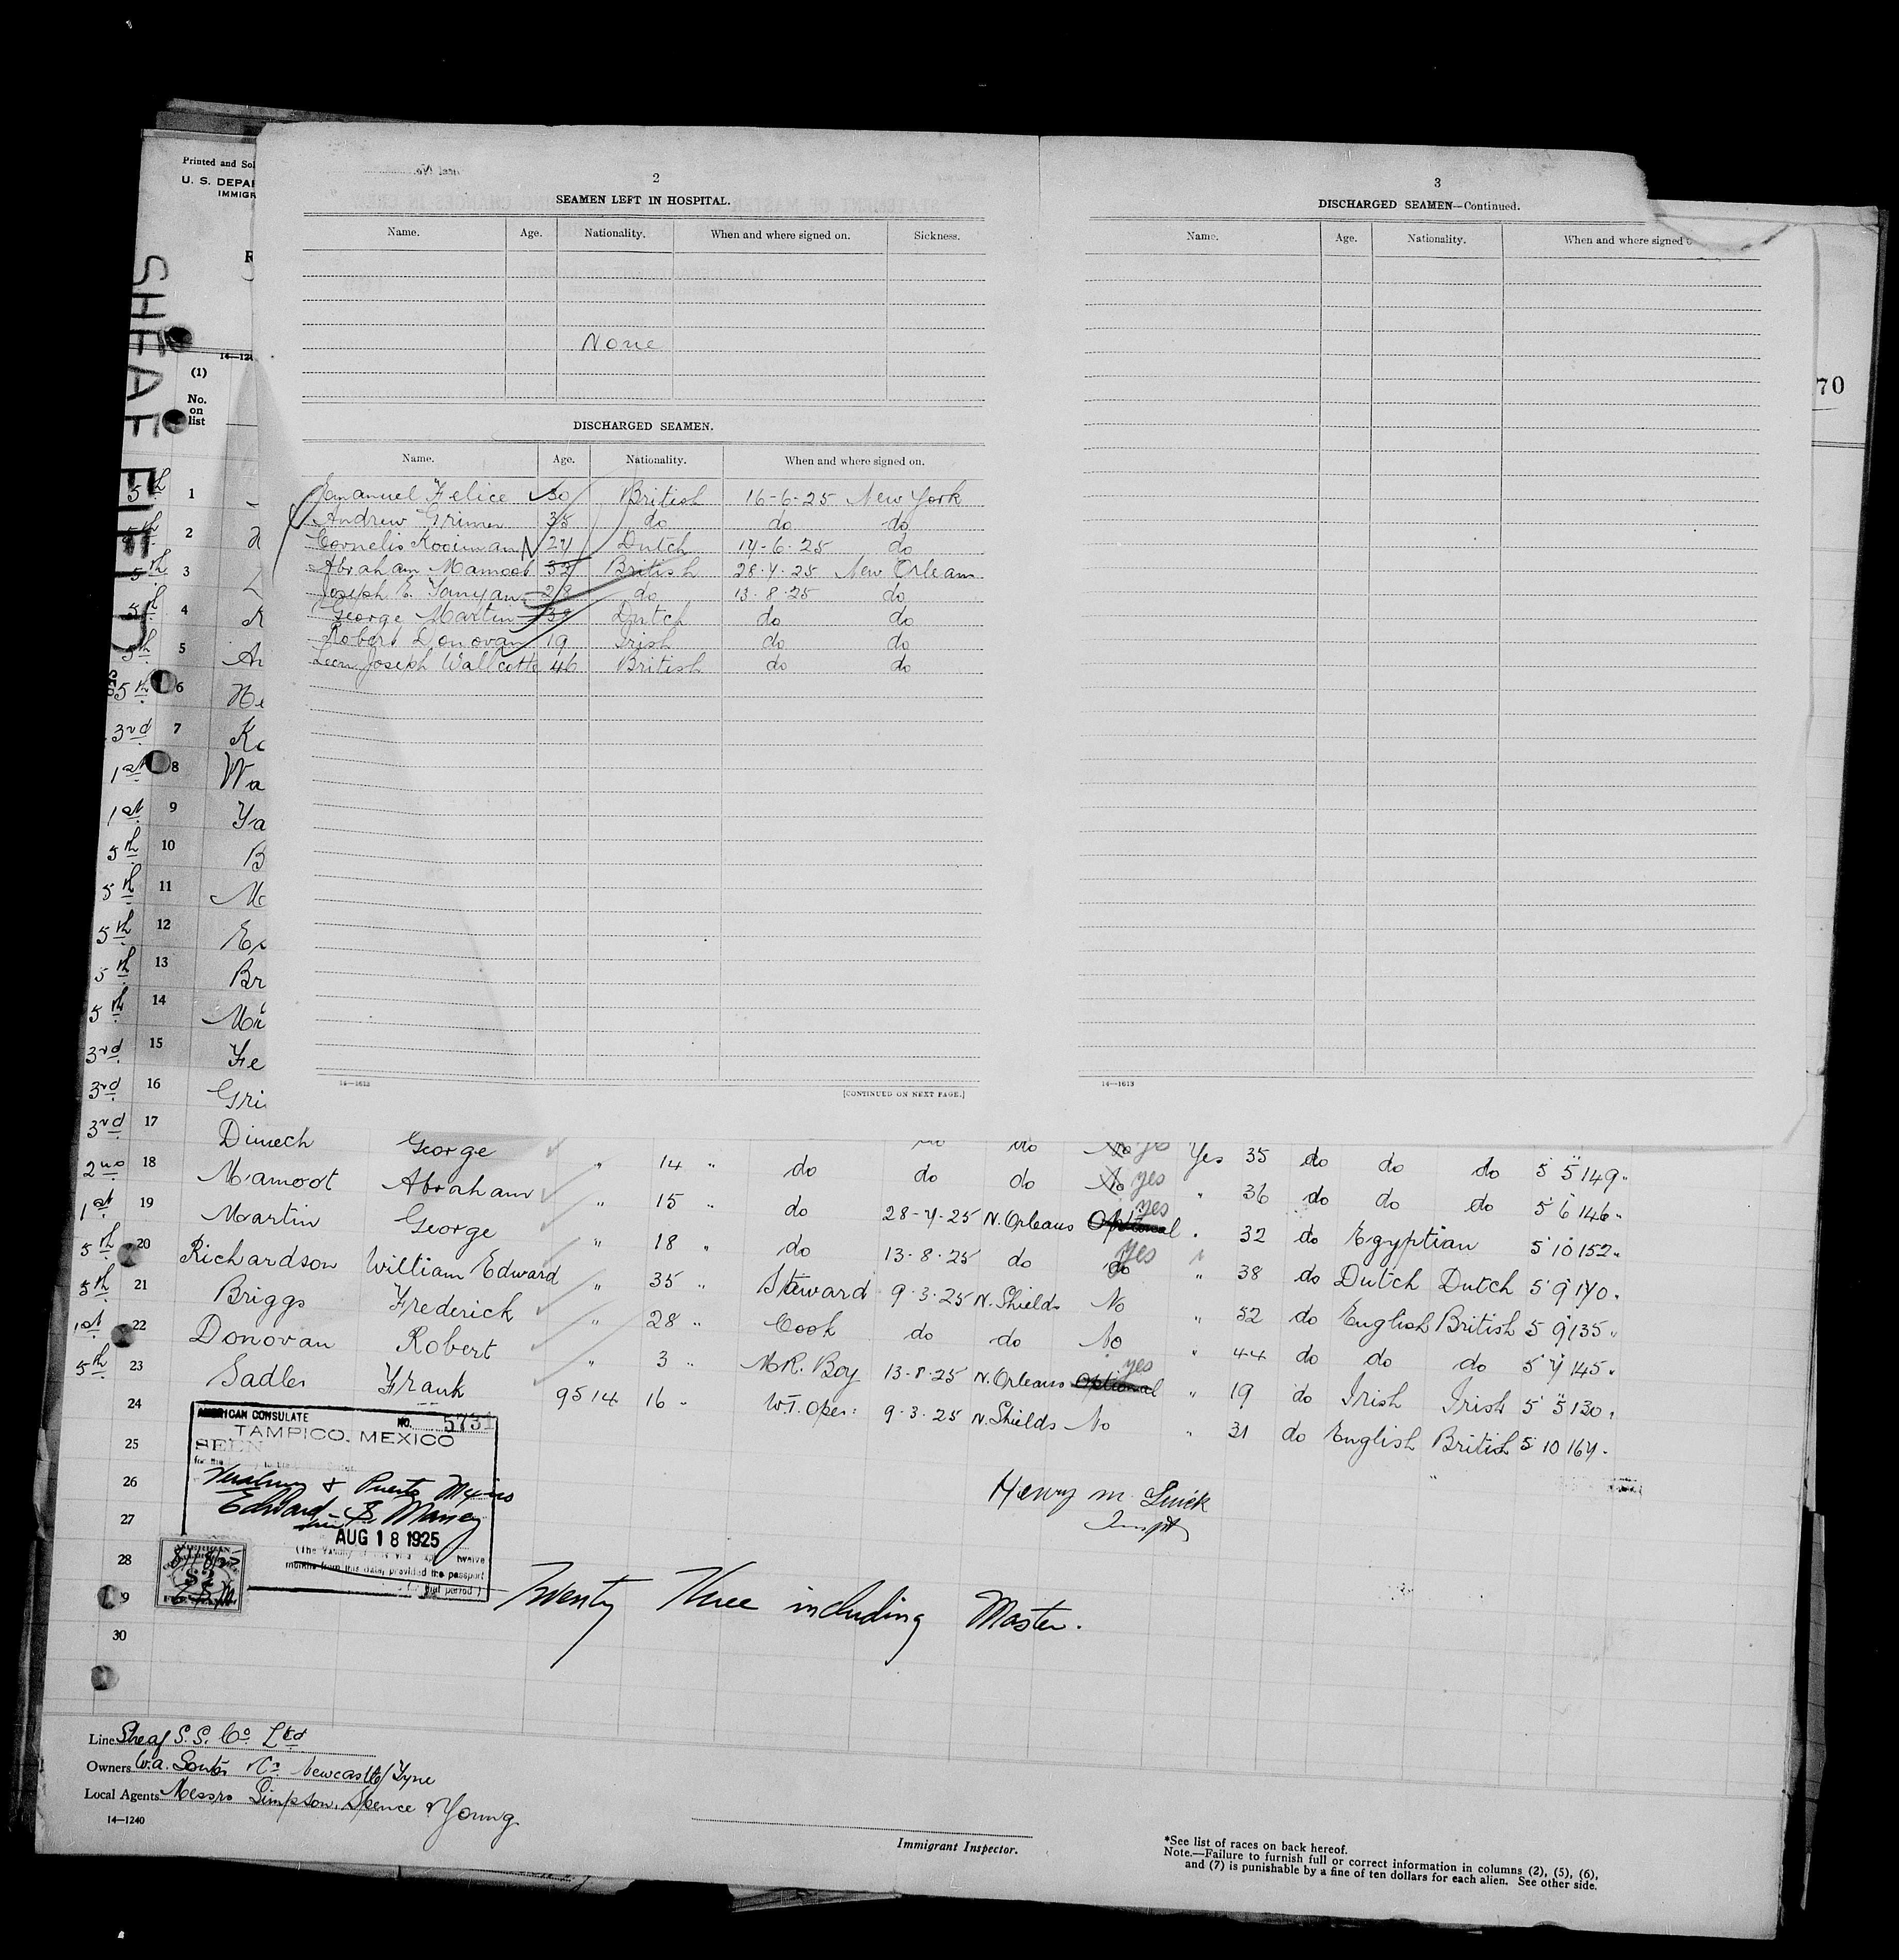 Printed and Sol
U. S. DEPAR
IMMIGR
SHEAF FIELD
14—124
(1)
No.
on
list
70
2
SEAMEN LEFT IN HOSPITAL.
Name. Age. Nationality. When and where signed on. Sickness.
None
DISCHARGED SEAMEN.
Name. Age. Nationality. When and where signed on.
Emanuel Felice 30 British 16-6-25 New York
Andrew Grimen 35 do do do
Cornelis Kooiman 24 Dutch 17-6-25 do
Abraham Mamoot 32 British 28-7-25 New Orleans
Joseph E. 28 do 13-8-25 do
George Martin 38 Dutch do do
Robert Donovan 19 Irish do do
Leon Joseph Wallcotte 46 British do do
14—1613
[CONTINUED ON NEXT PAGE.]
3
DISCHARGED SEAMEN—Continued.
Name. Age. Nationality. When and where signed o
14—1613
5th 1
5th 2
5th 3
5th 4
5th 5 An
5th 6 He
3rd 7 Ko
1st 8 Wa
1st 9 Ya
5th 10 B
5th 11 Mc
5th 12
5th 13 Br
5th 14
3rd 15 Fe
3rd 16 Gri
3rd 17 Dimech George " 14 " do do do No yes Yes 35 do do do 5 5 149 "
2nd 18 Mamoot Abraham " 15 " do do do No yes " 36 do do do 5 6 146 "
1st 19 Martin George " 18 " do 28-7-25 N. Orleans Optional yes " 32 do Egyptian 5 10 152 "
5th 20 Richardson William Edward " 35 " Steward 13-8-25 do do yes " 38 do Dutch Dutch 5 9 170 "
5th 21 Briggs Frederick " 28 " Cook 9-3-25 N. Shields No " 52 do English British 5 9 135 "
1st 22 Donovan Robert " 3 " M.R. Boy do do No " 44 do do do 5 7 145 "
5th 23 Sadler Frank 9514 16 " W.T. Oper: 13-8-25 N. Orleans Optional yes " 19 do Irish Irish 5 5 130 "
24 9-3-25 N. Shields No " 31 do English British 5 10 164 "
25
26
27
28
29
30
AMERICAN CONSULATE NO. 5731
TAMPICO, MEXICO
SEEN
& Puerto Mexico
Edward
AUG 18 1925
twelve
months from this date, provided the passport
for that period)
$2
Henry M.
Inspt
Twenty Three including Master.
Line Sheaf S.S. Co. Ltd
Owners W.A. Souter & Co. Newcastle/Tyne
Local Agents Messrs Simpson, Spence & Young
14—1240
Immigrant Inspector.
*See list of races on back hereof.
Note.—Failure to furnish full or correct information in columns (2), (5), (6),
and (7) is punishable by a fine of ten dollars for each alien. See other side.